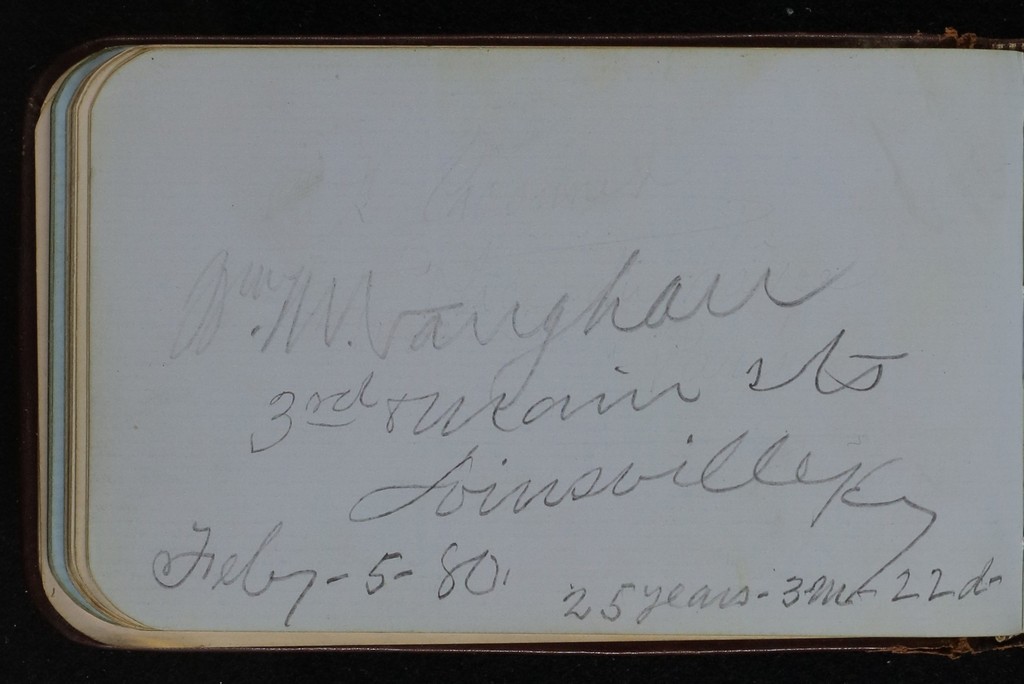 Wm. M. Vaughan
3rd & Main Sts
Louisville Ky
Feby - 5 - 80.
25 years - 3 m - 22 d -